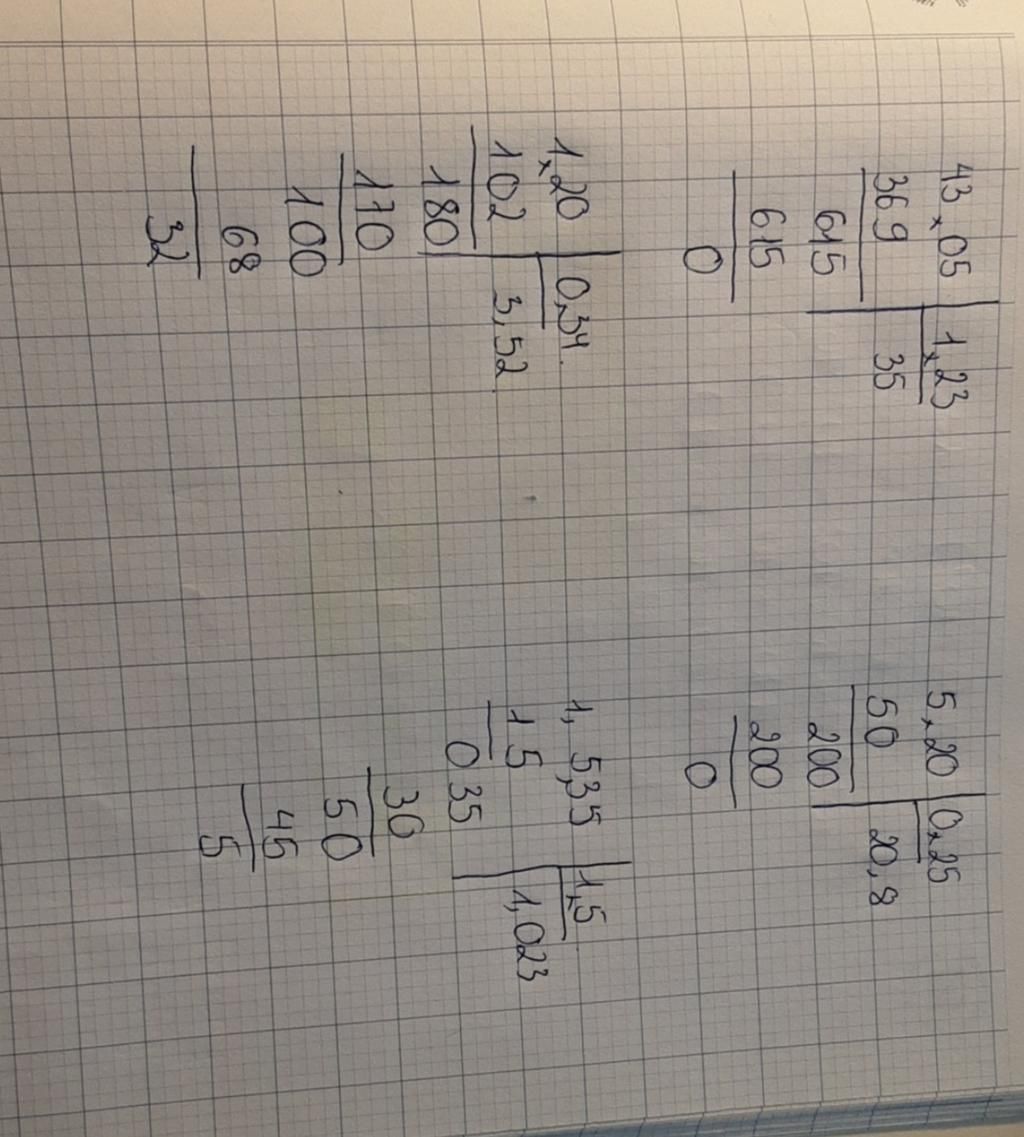 43,05 | 1,23
369 | 35
615
615
0
5,20 | 0,25
50 | 20,8
200
200
0
1,20 | 0,34
102 | 3,52
180
170
100
68
32
1,535 | 1,5
15 | 1,023
035
30
50
45
5